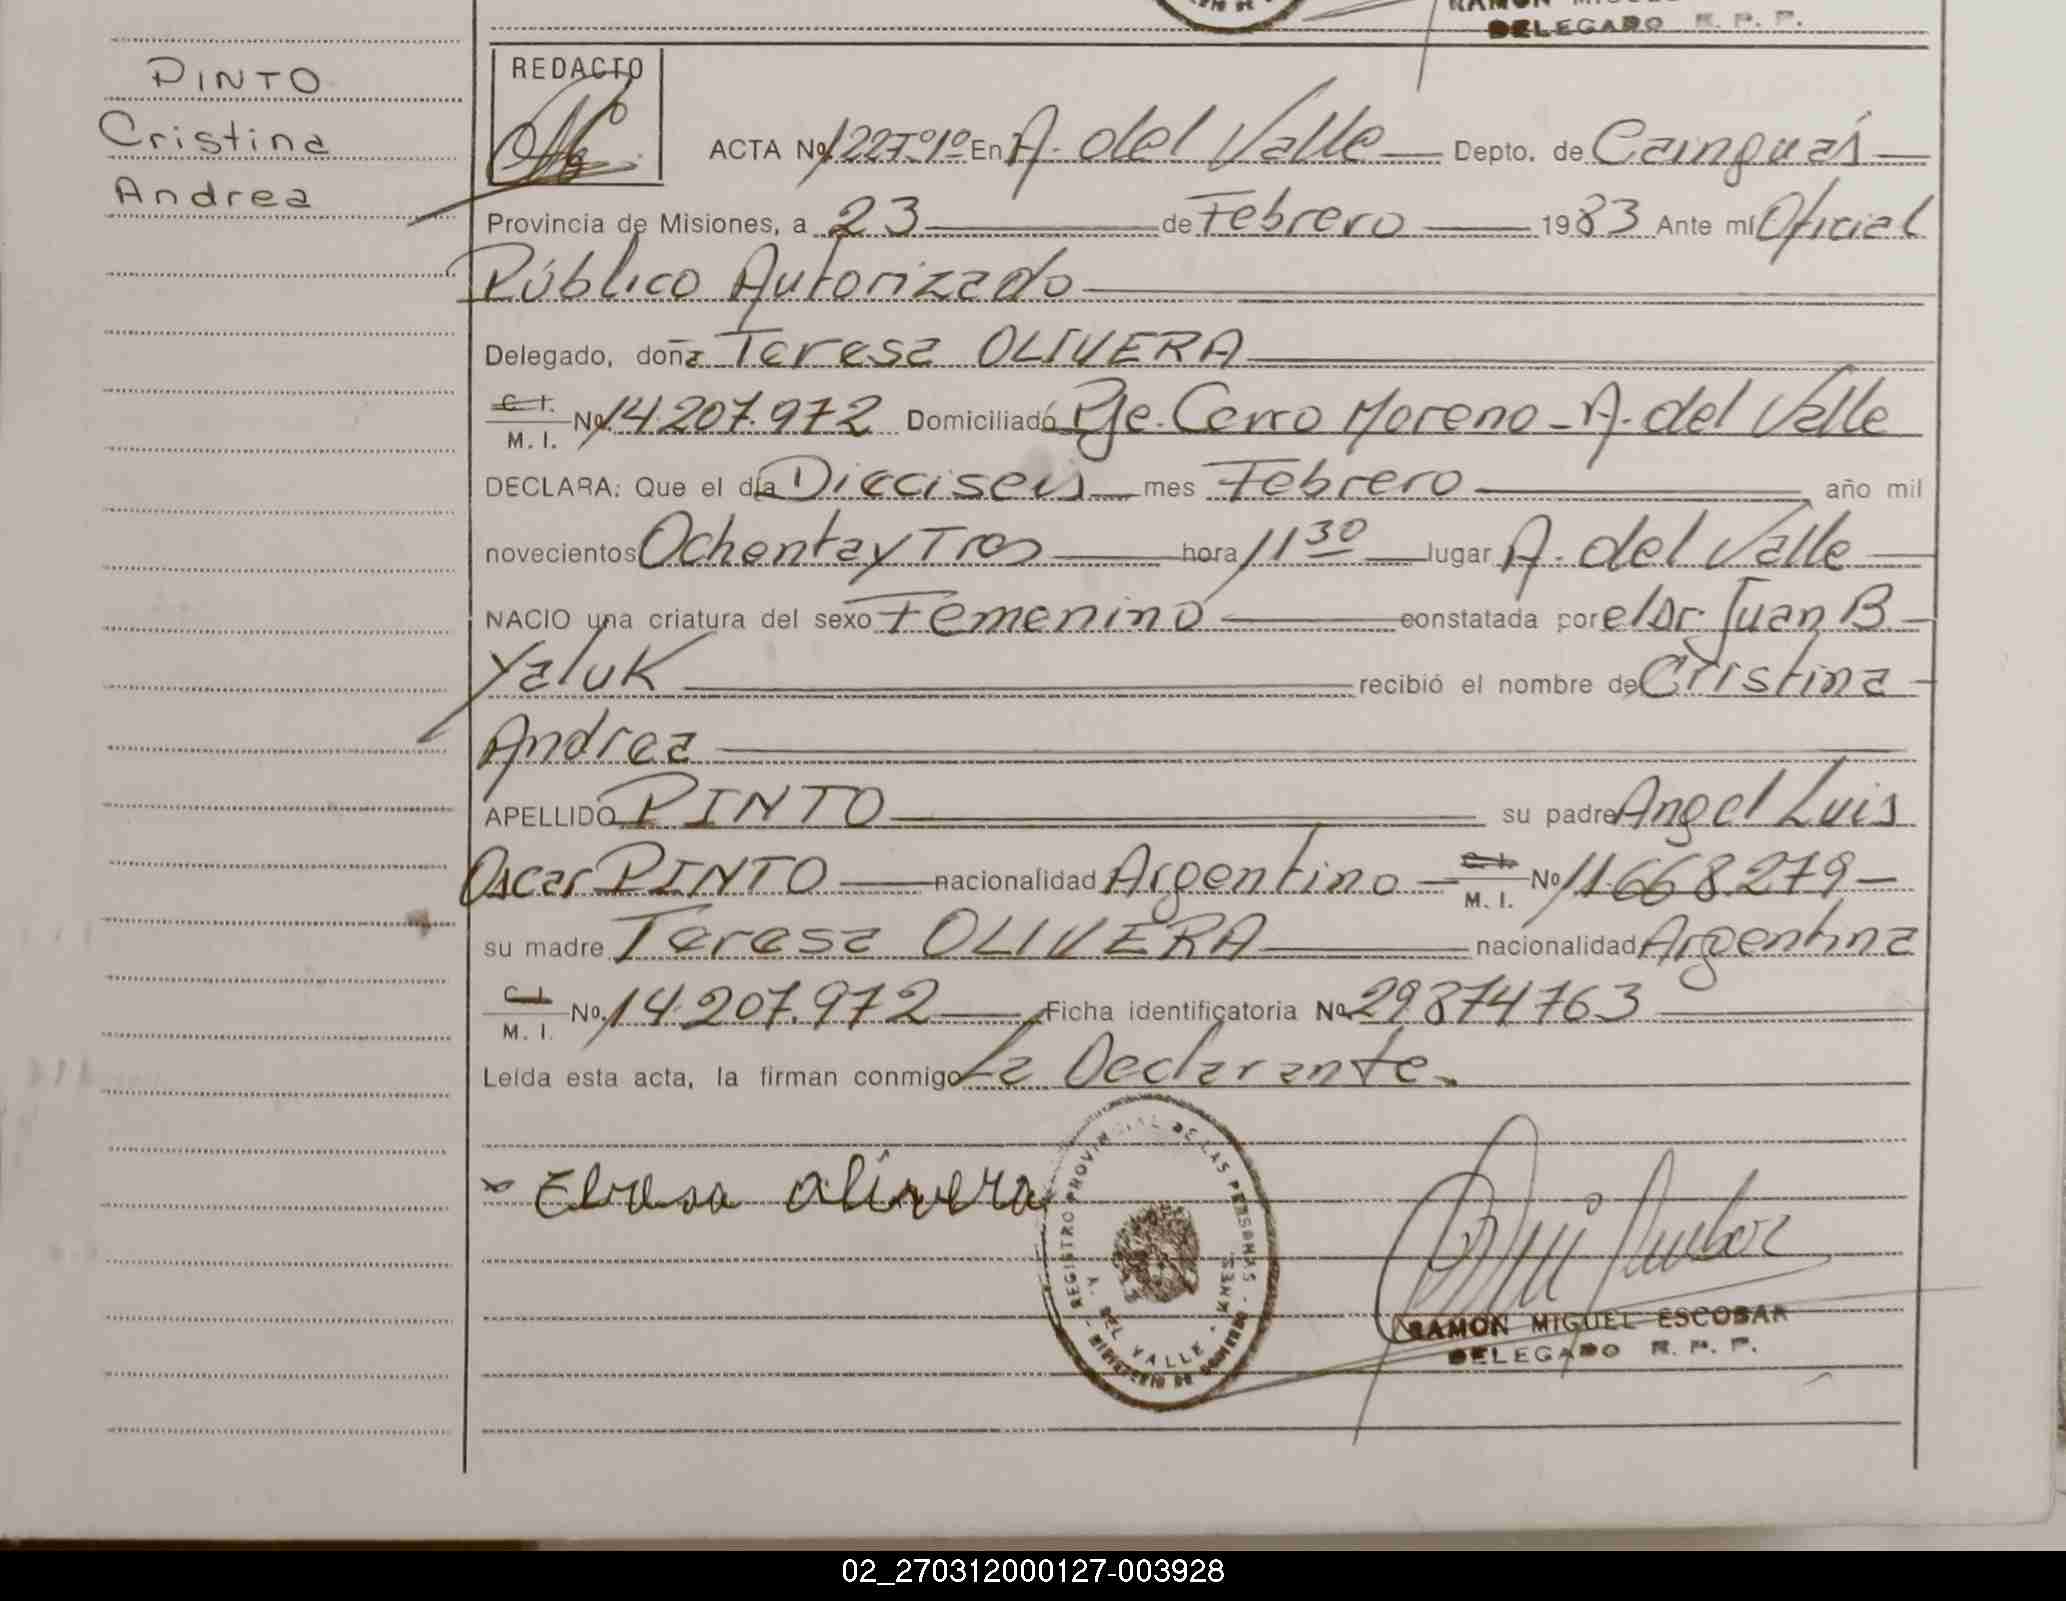 DELEGADO R. P. P.
PINTO
Cristina
Andrea
REDACTO
ACTA Nº 122Tº1º En A. del Valle Depto. de Cainguás
Provincia de Misiones, a 23 de Febrero 1983 Ante mí Oficial
Público Autorizado
Delegado, doña Teresa OLIVERA
C. I. M. I. Nº 14.207.972 Domiciliado Pje. Cerro Moreno - A. del Valle
DECLARA: Que el día Dieciseis mes Febrero año mil
novecientos Ochenta y Tres hora 11 30 lugar A. del Valle
NACIO una criatura del sexo Femenino constatada por el Dr. Juan B.
Yaluk recibió el nombre de Cristina
Andrea
APELLIDO PINTO su padre Angel Luis
Oscar PINTO nacionalidad Argentino C. I. M. I. Nº 11.668.279
su madre Teresa OLIVERA nacionalidad Argentina
C. I. M. I. No. 14.207.972 Ficha identificatoria No. 29874763
Leída esta acta, la firman conmigo La Declarante.
olivera
REGISTRO PROVINCIAL DE LAS PERSONAS - MNES.
A. DEL VALLE - MINISTERIO DE GOBIERNO
RAMON MIGUEL ESCOBAR
DELEGADO R. P. P.
02_270312000127-003928